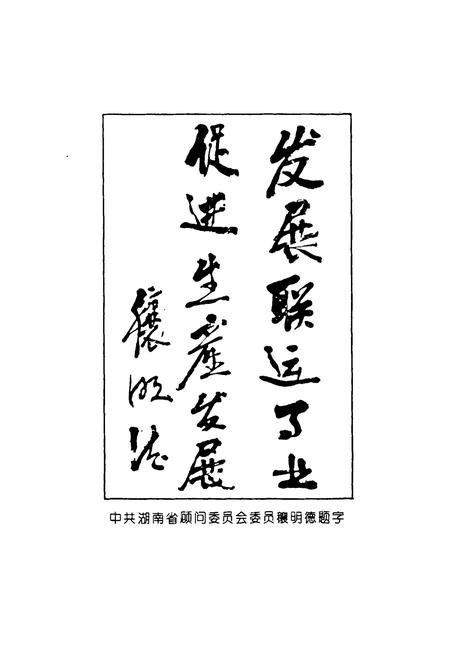 发展联运事业
促进生產发展
穰明德
中共湖南省顾问委员会委员穰明德题字